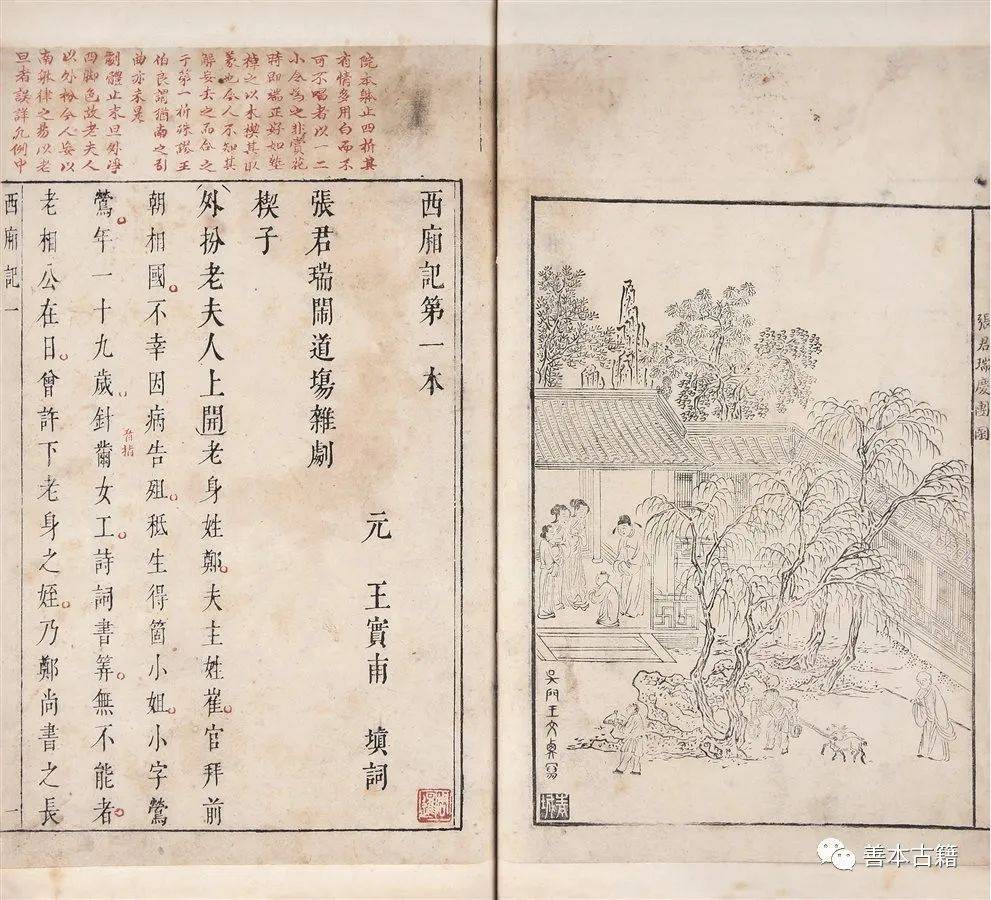 張君瑞慶團圞
吳門王文衡寫
青城
院本每止四折其
有情多用白而不
可不唱者以一二
小令為之非賞花
時即端正好如墊
棹之以木楔其取
義也今人不知其
解妄去之而合之
于第一折殊謬王
伯良謂猶南之引
曲亦未是
劇體止末旦外淨
四脚色故老夫人
以外扮今人妄以
南 律之易以老
旦者誤詳凡例中
西廂記第一本
張君瑞鬧道塲雜劇
元 王實甫 塡詞
楔子
外扮老夫人上開老身姓鄭夫主姓崔官拜前
朝相國不幸因病告殂秪生得箇小姐小字鶯
鶯年一十九歲針黹女工詩詞書筭無不能者
音指
老相公在日曾許下老身之姪乃鄭尚書之長
西廂記一 一
善本古籍